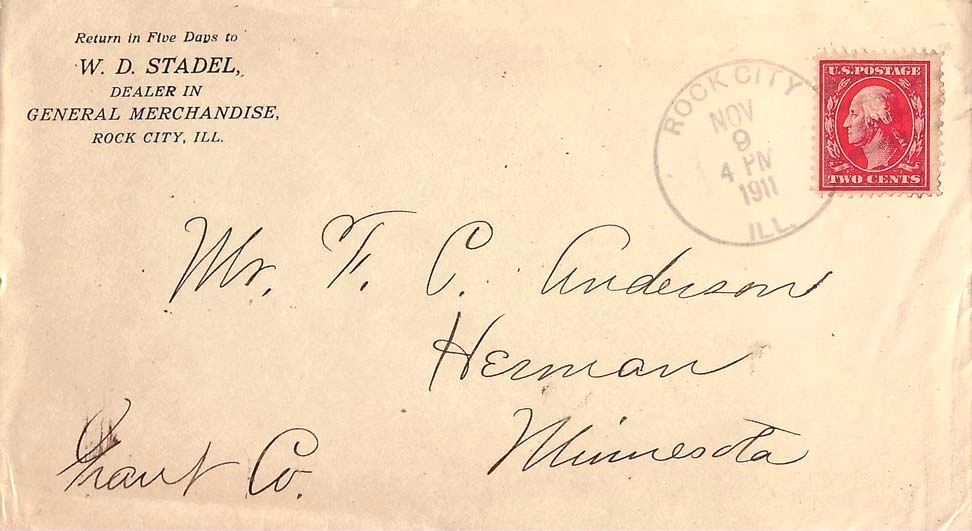 Return in Five Days to
W. D. STADEL,
DEALER IN
GENERAL MERCHANDISE,
ROCK CITY, ILL.
ROCK CITY
NOV
9
4 PM
1911
ILL.
U.S. POSTAGE
TWO CENTS
Mr. F. C. Anderson
Herman
Minnesota
Grant Co.